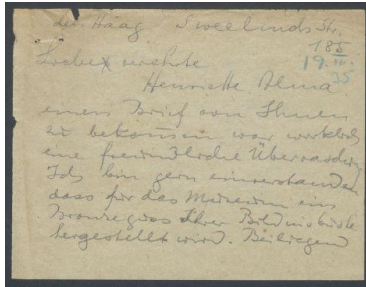 den Haag Sweelinckstr.
185
19. III. 35
Liebe verehrte
Henriette Alma
einen Brief von Ihnen
zu bekommen war wirklich
eine freundliche Überraschung
Ich bin gern einverstanden
dass für das Museum ein
Bronzeguss Ihrer Bildnisbüste
hergestellt wird. Beiliegend